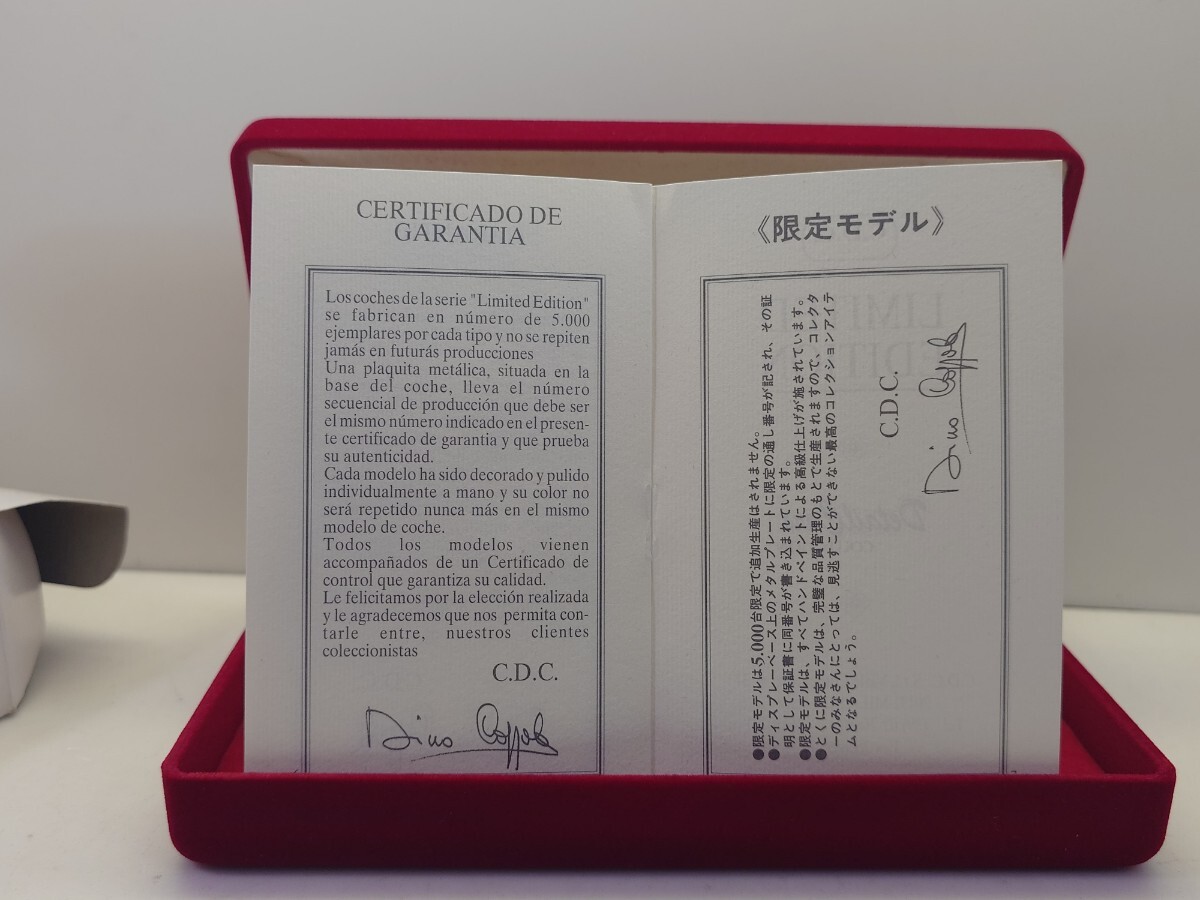 CERTIFICADO DE
GARANTIA
Los coches de la serie "Limited Edition"
se fabrican en número de 5.000
ejemplares por cada tipo y no se repiten
jamás en futurás producciones
Una plaquita metálica, situada en la
base del coche, lleva el número
secuencial de producción que debe ser
el mismo número indicado en el presen-
te certificado de garantia y que prueba
su autenticidad.
Cada modelo ha sido decorado y pulido
individualmente a mano y su color no
será repetido nunca más en el mismo
modelo de coche.
Todos los modelos vienen
accompañados de un Certificado de
control que garantiza su calidad.
Le felicitamos por la elección realizada
y le agradecemos que nos permita con-
tarle entre, nuestros clientes
coleccionistas
C.D.C.
Dino Coppola
《限定モデル》
●限定モデルは5.000台限定で追加生産はされません。
●ディスプレーベース上のメタルプレートに限定の通し番号が記され、その証
明として保証書に同番号が書き込まれています。
●限定モデルは、すべてハンドペイントによる高級仕上げが施されています。
●とくに限定モデルは、完璧な品質管理のもとで生産されますので、コレクタ
ーのみなさんにとっては、見逃すことができない最高のコレクションアイテ
ムとなるでしょう。
C.D.C.
Dino Coppola